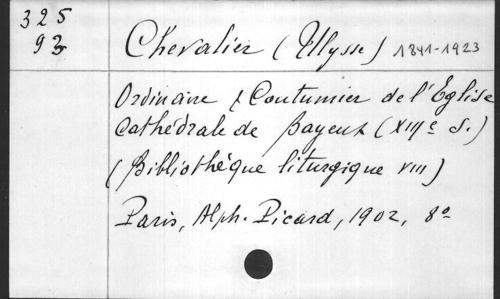 325
93
Chevalier (Ulysse) 1841-1923
Ordinaire & Coutumier de l'Église
Cathédrale de Bayeux (XIIIe s.)
(Bibliothèque liturgique VIII)
Paris, Alph. Picard, 1902, 8o